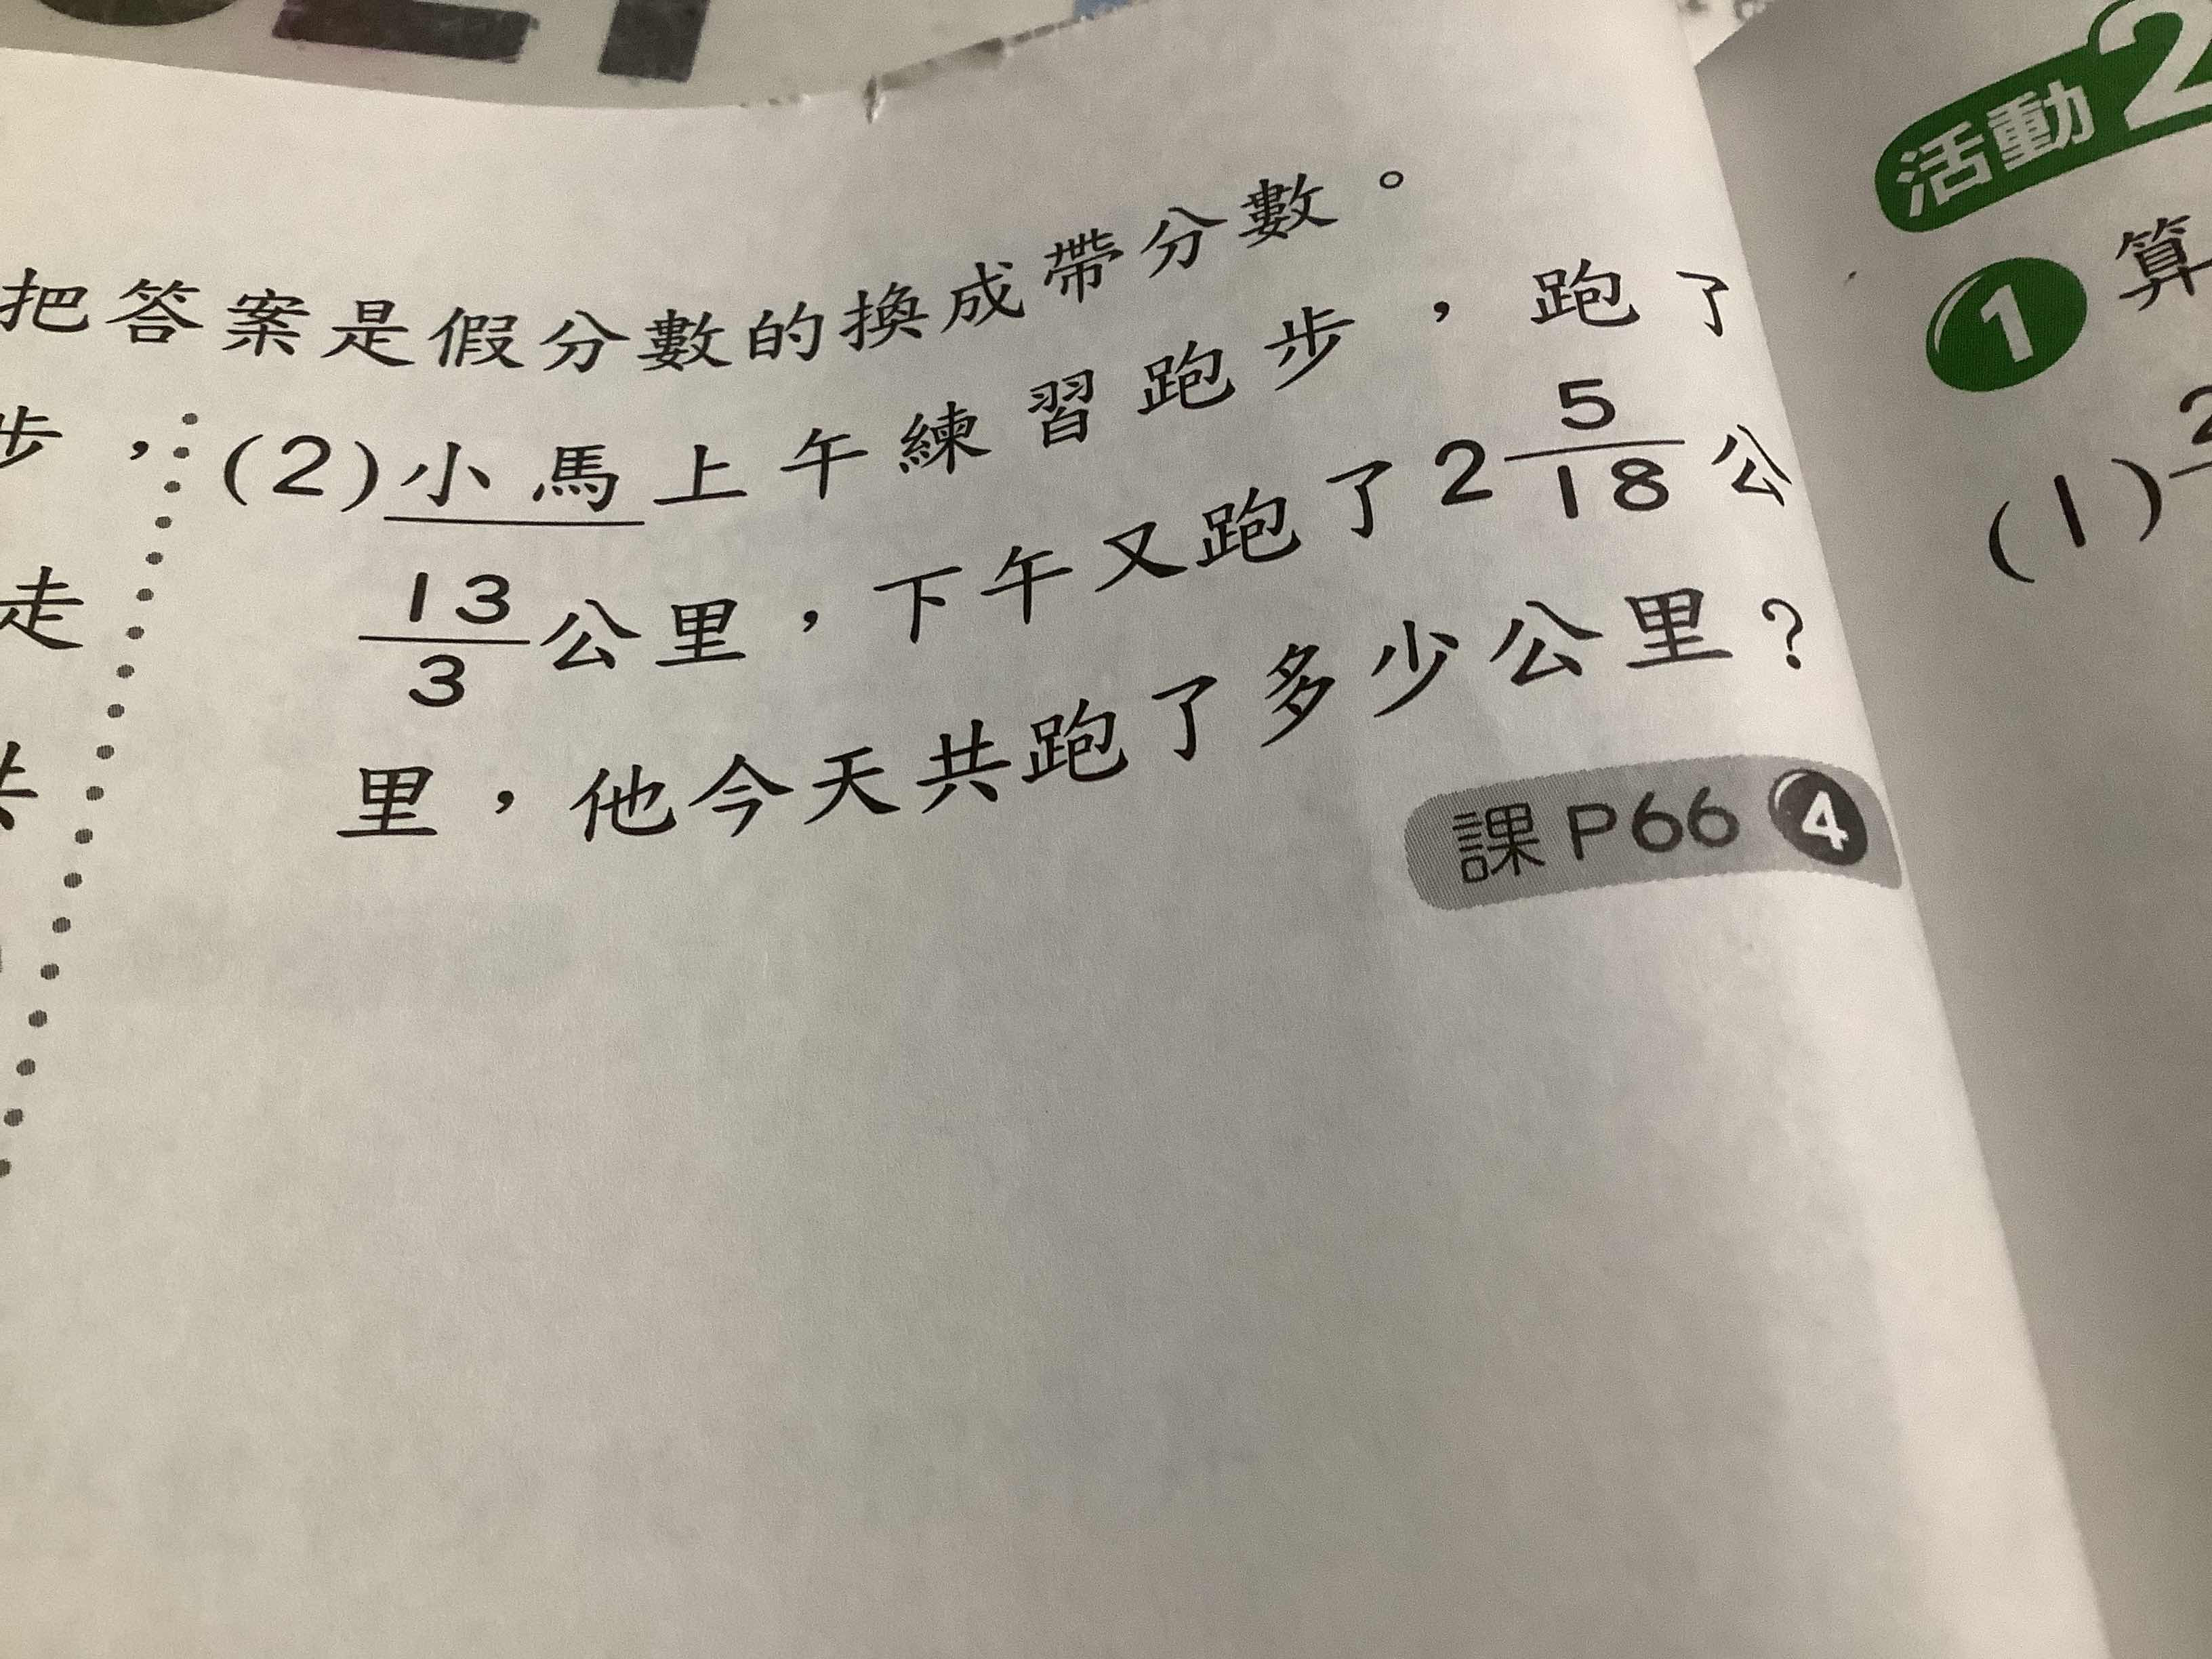 把答案是假分數的換成帶分數。
步，
走
(2)小馬上午練習跑步，跑了
13/3公里，下午又跑了2 5/18公
里，他今天共跑了多少公里？
課P66 4
活動2
1 算
(1)2